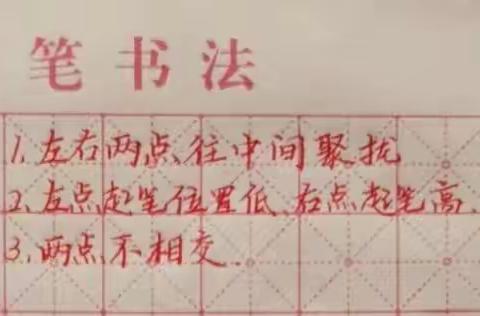 笔书法
1.左右两点往中间聚拢
2.左点起笔位置低、右点起笔高.
3.两点不相交.